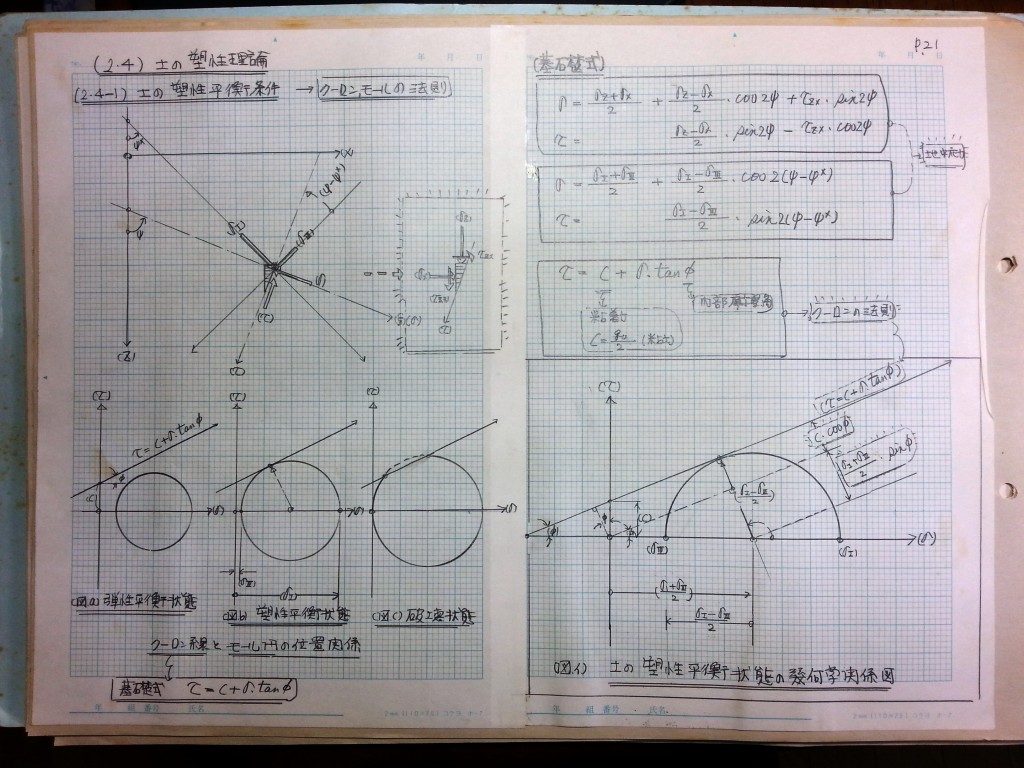 (2.4) 土の塑性理論
(2.4-1) 土の塑性平衡条件 → クーロン,モールの法則
(X)
(φ-φ*)
φ
(σI)
(σIII)
(σ)
(τ)
(Z)
(τ)
σz
τzx
σx
(τ)
(σ)
τ=c+σ.tanφ
(τ)
(σ)
(τ)
(σ)
(σIII)
(σI)
(図a) 弾性平衡状態
(図b) 塑性平衡状態
(図c) 破壊状態
クーロン線とモール円の位置関係
基礎式 τ=c+σ.tanφ
年 組 番号 氏名
年 月 日
P.21
(基礎式)
σ= (σz+σx)/2 + (σz-σx)/2 . cos2φ + τzx . sin2φ
τ= (σz-σx)/2 . sin2φ - τzx . cos2φ
σ= (σI+σIII)/2 + (σI-σIII)/2 . cos2(φ-φ*)
τ= (σI-σIII)/2 . sin2(φ-φ*)
τ = c + σ.tanφ
内部摩擦角
粘着力
c= qu/2 (粘土)
クーロンの法則
(τ)
(τ=c+σ.tanφ)
c.cosφ
(σI+σIII)/2 . sinφ
(σI-σIII)/2
(φ)
(c)
(σIII)
(σI)
(σ)
(σI+σIII)/2
(σI-σIII)/2
(図1) 土の塑性平衡状態の幾何学関係図
年 組 番号 氏名